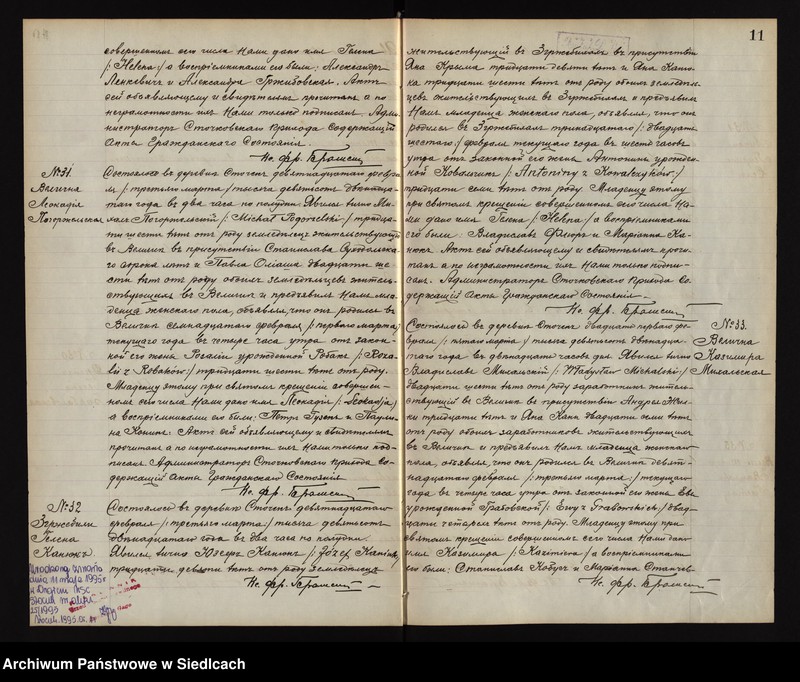 совершенномъ сего числа Нами дано имя Гелена
/: Helena :/ а воспріемниками его были: Александръ
и Александра Акт
сей объявляющему и свидѣтелямъ прочитанъ а по
неграмотности ихъ Нами только подписанъ. Адми-
нистраторъ Сточковскаго Прихода Содержащій
Акты Гражданскаго Состоянія
Кс. Фр.
№31.
Велична
Леокадія
Погоржельская
Состоялось въ деревнѣ Сточекъ девятнадцатаго февра-
ля /: третьяго марта :/ тысяча девятьсотъ двѣнадца-
таго года въ два часа по полудни. Явился лично Ми-
халъ Погоржельскій /: Michał Pogorzelski :/ тридца-
ти шести лѣтъ отъ роду земледѣлецъ жительствующій
въ Величнѣ въ присутствіи Станислава
сорока лѣтъ и Павла двадцати ше-
сти лѣтъ отъ роду обоихъ земледѣльцевъ житель-
ствующихъ въ Величнѣ и предъявилъ Намъ мла-
денца женскаго пола, объявляя, что онъ родился въ
Величнѣ семнадцатаго февраля /: перваго марта :/
текущаго года въ четыре часа утра отъ закон-
ной его жены Розаліи урожденной Робакъ /: Roza-
lii z Robaków :/ тридцати шести лѣтъ отъ роду.
Младенцу этому при святомъ крещеніи совершен-
номъ сего числа Нами дано имя Леокадія /: Leokadja :/
а воспріемниками его были: Петръ и Паули-
на Актъ сей объявляющему и свидѣтелямъ
прочитанъ а по неграмотности ихъ Нами только под-
писанъ. Администраторъ Сточковскаго Прихода Со-
держащій Акты Гражданскаго Состоянія
Кс. Фр.
№32
Згржебихи
Гелена
Канюкъ
Состоялось въ деревнѣ Сточекъ девятнадцатаго
февраля /: третьяго марта :/ тысяча девятьсотъ
двѣнадцатаго года въ два часа по полудни.
Явился лично Юзефъ Канюкъ /: Józef Kaniuk :/
тридцати девяти лѣтъ отъ роду земледѣлецъ
Кс. Фр.
dnia 11 maja 1995 r
11
жительствующій въ Згржебихахъ въ присутствіи
Яна Крыма тридцати девяти лѣтъ и Яна Каню-
ка тридцати шести лѣтъ отъ роду обоихъ земледѣль-
цевъ жительствующихъ въ Згржебихахъ и предъявилъ
Намъ младенца женскаго пола, объявляя, что онъ
родился въ Згржебихахъ тринадцатаго /: двадцать
шестаго :/ февраля текущаго года въ шесть часовъ
утра отъ законной его жены Антонины урожден-
ной Ковальчикъ /: Antoniny z Kowalczyków :/
тридцати семи лѣтъ отъ роду. Младенцу этому
при святомъ крещеніи совершенномъ сего числа На-
ми дано имя Гелена /: Helena :/ а воспріемниками
его были: Владиславъ и Маріанна Ка-
нюкъ. Актъ сей объявляющему и свидѣтелямъ прочи-
танъ а по неграмотности ихъ Нами только подпи-
санъ. Администраторъ Сточковскаго Прихода Со-
держащій Акты Гражданскаго Состоянія.
Кс. Фр.
№33.
Велична
Казимира
Михальская
Состоялось въ деревнѣ Сточекъ двадцать перваго фе-
враля /: пятаго марта :/ тысяча девятьсотъ двѣнадца-
таго года въ двѣнадцать часовъ дня. Явился лично
Владиславъ Михальскій /: Władysław Michalski :/
двадцати шести лѣтъ отъ роду заработникъ житель-
ствующій въ Величнѣ въ присутствіи Андрея
тридцати лѣтъ и Яна двадцати семи лѣтъ
отъ роду обоихъ заработниковъ жительствующихъ
въ Величнѣ и предъявилъ Намъ младенца женскаго
пола, объявляя, что онъ родился въ Величнѣ девят-
надцатаго февраля /: третьяго марта :/ текущаго
года въ четыре часа утра отъ законной его жены Евы
урожденной Грабовской /: Ewy z Grabowskich :/ двад-
цати четырехъ лѣтъ отъ роду. Младенцу этому при
святомъ крещеніи совершенномъ сего числа Нами дано
имя Казимира /: Kazimiera :/ а воспріемниками
его были: Станиславъ и Маріанна
Кс. Фр.
Archiwum Państwowe w Siedlcach